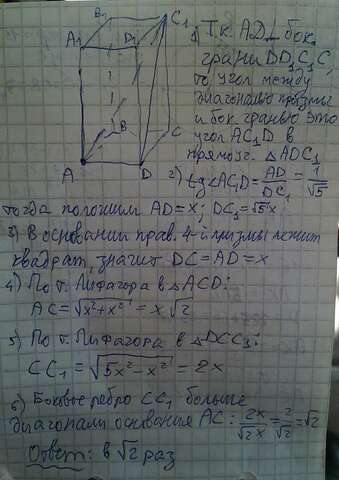 B₁ C₁
A₁ D₁
B C
A D
1) Т.к. AD⊥ бок.
грани DD₁C₁C,
то угол между
диагональю призмы
и бок. гранью это
угол AC₁D в
прямоуг. △ADC₁
2) tg∠AC₁D = AD/DC₁ = 1/√5
тогда положим AD=x; DC₁=√5x
3) В основании прав. 4-й призмы лежит
квадрат, значит DC=AD=x
4) По т. Пифагора в △ACD:
AC=√x²+x² = x√2
5) По т. Пифагора в △DCC₁:
CC₁ = √5x²-x² = 2x
6) Боковое ребро CC₁ больше
диагонали основания AC: 2x/√2x = 2/√2 = √2
Ответ: в √2 раз